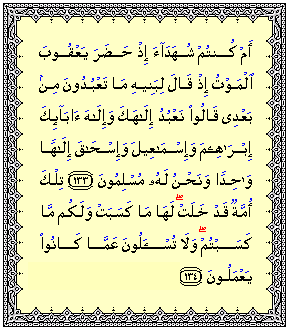 أَمْ كُنتُمْ شُهَدَآءَ إِذْ حَضَرَ يَعْقُوبَ
ٱلْمَوْتُ إِذْ قَالَ لِبَنِيهِ مَا تَعْبُدُونَ مِنۢ
بَعْدِى قَالُوا۟ نَعْبُدُ إِلَٰهَكَ وَإِلَٰهَ ءَابَآئِكَ
إِبْرَٰهِۦمَ وَإِسْمَٰعِيلَ وَإِسْحَٰقَ إِلَٰهًا
وَٰحِدًا وَنَحْنُ لَهُۥ مُسْلِمُونَ ١٣٣ تِلْكَ
أُمَّةٌ قَدْ خَلَتْ ۖ لَهَا مَا كَسَبَتْ وَلَكُم مَّا
كَسَبْتُمْ ۖ وَلَا تُسْـَٔلُونَ عَمَّا كَانُوا۟
يَعْمَلُونَ ١٣٤